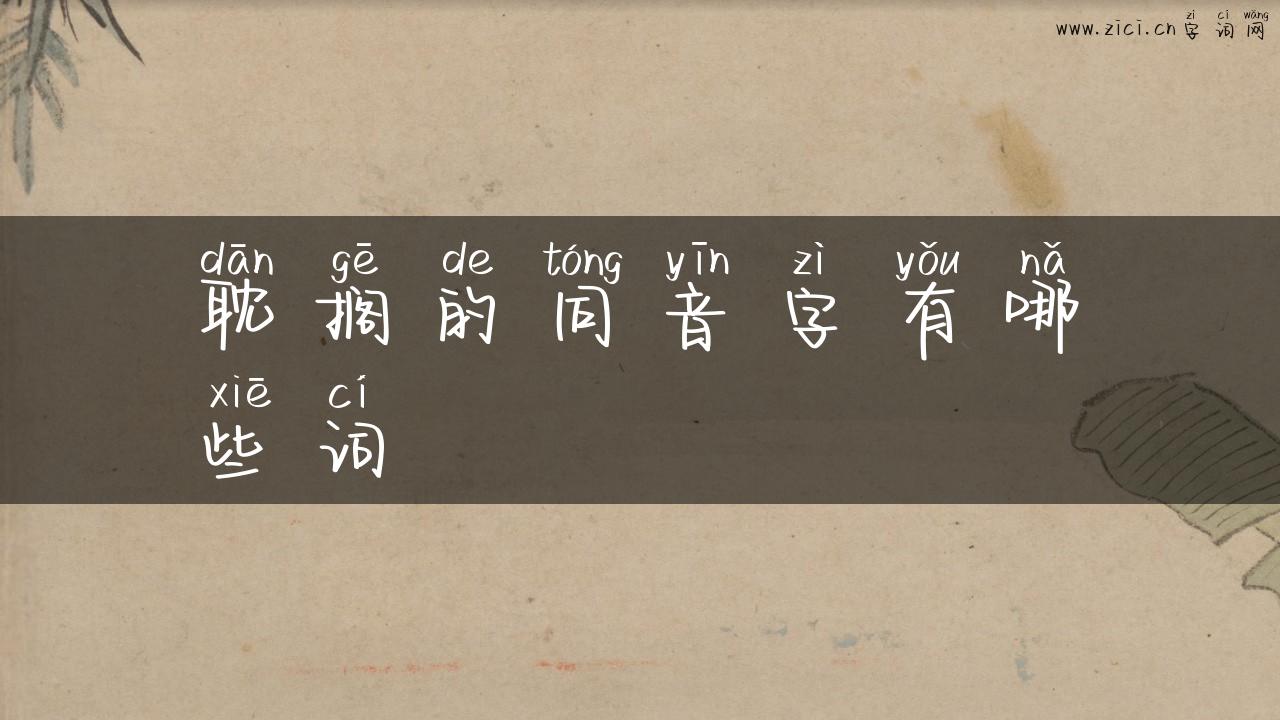 zì cí wǎng
www.zici.cn 字 词 网
dān gē de tóng yīn zì yǒu nǎ
耽 搁 的 同 音 字 有 哪
xiē cí
些 词